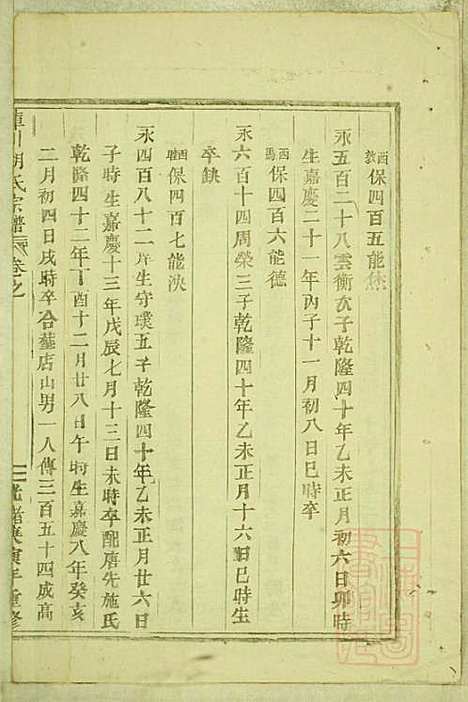 西敦保四百五能烋
永五百二十八雲衡次子乾隆四十年乙未正月初六日卯時
生嘉慶二十一年丙子十一月初八日巳時卒
西馬保四百六能德
永六百十四周榮三子乾隆四十年乙未正月十六日巳時生
卒缺
西保四百七能泱
永四百八十二庠生守璞五子乾隆四十年乙未正月廿六日
子時生嘉慶十三年戊辰七月十三日未時卒配唐先施氏
乾隆四十二年丁酉十二月廿八日午時生嘉慶八年癸亥
二月初四日戌時卒合塟店山男一人傳三百五十四成高
川胡氏宗譜 卷之 光緒庚寅年重修